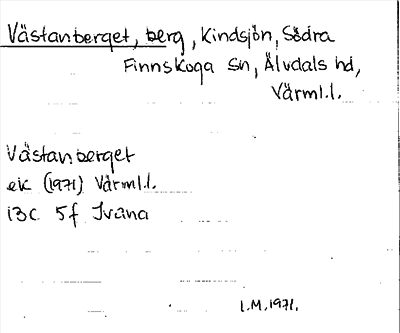 Västanberget, berg, Kindsjön, Södra
Finnskoga sn, Älvdals hd,
Värml.l.
Västanberget
ek (1971) Värml.l.
13C 5f Ivana
I.M. 1971.